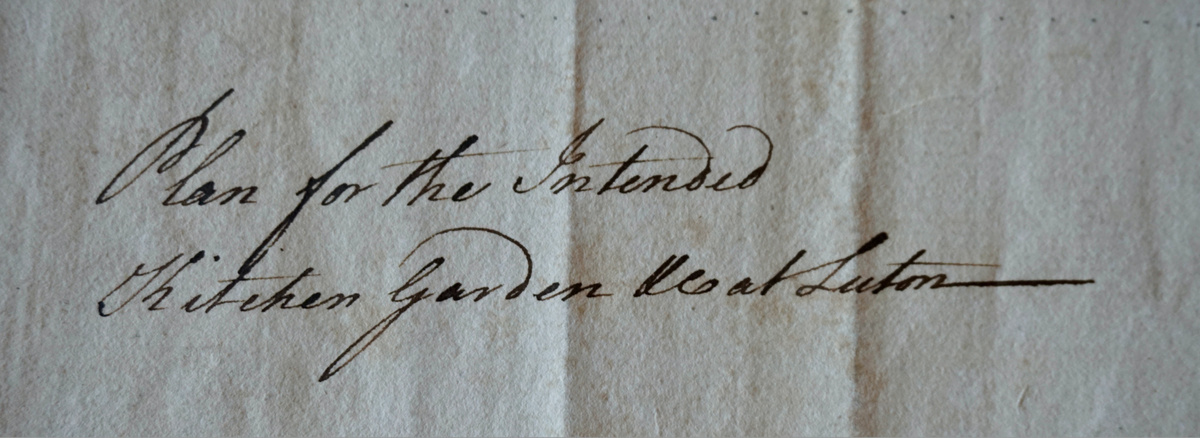 Plan for the Intended
Kitchen Garden &c at Luton